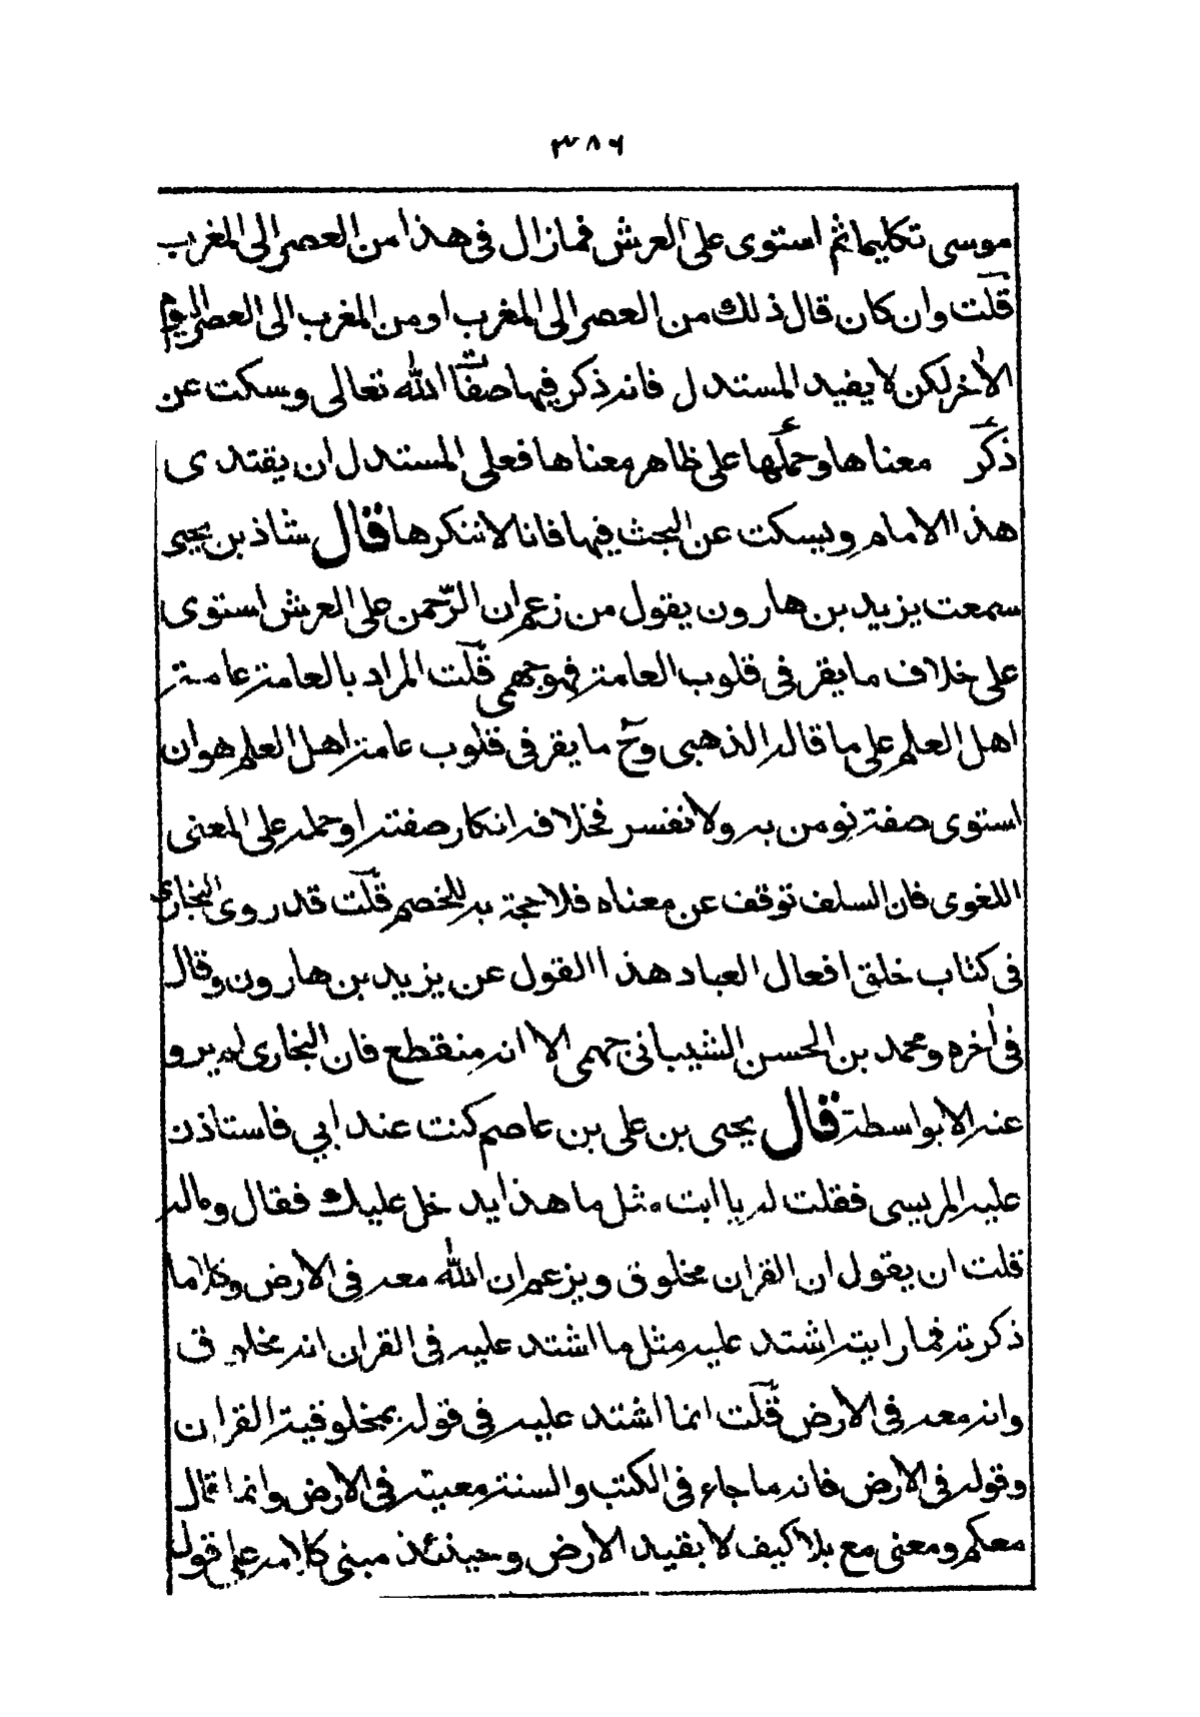 ٣٨٦
موسى تكليما ثم استوى على العرش فما زال في هذا من العصر الى المغرب
قلت وان كان قال ذلك من العصر الى المغرب او من المغرب الى العصر اليوم
الأخر لكن لا يفيد المستدل فانه ذكر فيها صفات الله تعالى وسكت عن
ذكر معناها وحملها على ظاهر معناها فعلى المستدل ان يقتدى
هذا الامام ويسكت عن البحث فيها فانا لا ننكرها قال شاذ بن يحيى
سمعت يزيد بن هارون يقول من زعم ان الرّحمن على العرش استوى
على خلاف ما يقر في قلوب العامة فهو جهمى قلت المراد بالعامة عامة
اهل العلم على ما قاله الذهبى وح ما يقر في قلوب عامة اهل العلم هو ان
استوى صفة نومن به ولا نفسر فخلافه انكار صفته او حمله على المعنى
اللغوى فان السلف توقف عن معناه فلا حجة به للخصم قلت قد روى البخارى
في كتاب خلق افعال العباد هذا القول عن يزيد بن هارون وقال
في أخره ومحمد بن الحسن الشيبانى جهمى الا انه منقطع فان البخارى لم يرو
عنه الا بواسطة قال يحيى بن على بن عاصم كنت عند ابي فاستاذن
عليه المريسى فقلت له يا ابت مثل ما هذا يدخل عليك فقال وماله
قلت ان يقول ان القران مخلوق ويزعم ان الله معه في الارض وكلاما
ذكرته فما رايته اشتد عليه مثل ما اشتد عليه في القران انه مخلوق
وانه معه في الارض قلت انما اشتد عليه في قوله بمخلوقية القران
وقوله في الارض فانه ما جاء في الكتب والسنة معيته في الارض وانما قال
معكم ومعنى مع بلا كيف لا بقيد الارض وحينئذ مبنى كلامه على قوله